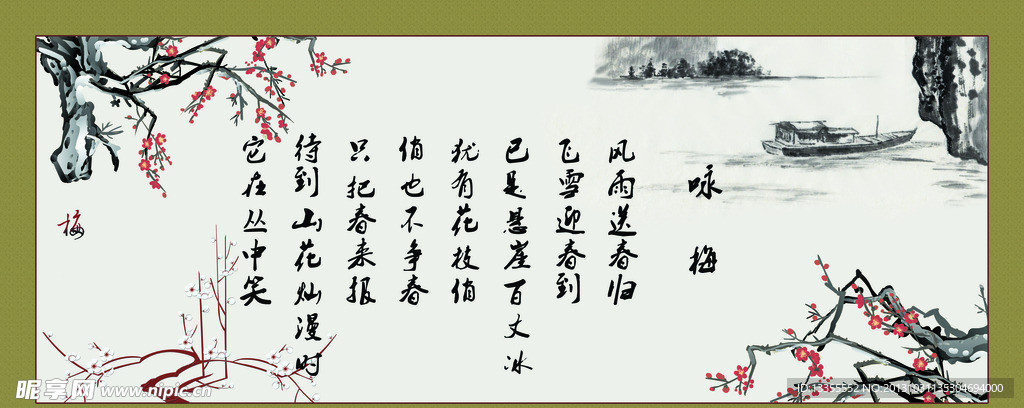 咏梅
风雨送春归
飞雪迎春到
已是悬崖百丈冰
犹有花枝俏
俏也不争春
只把春来报
待到山花灿漫时
它在丛中笑
梅
昵享网 www.nipic.cn
ID:13355552 NO:20131031135304694000